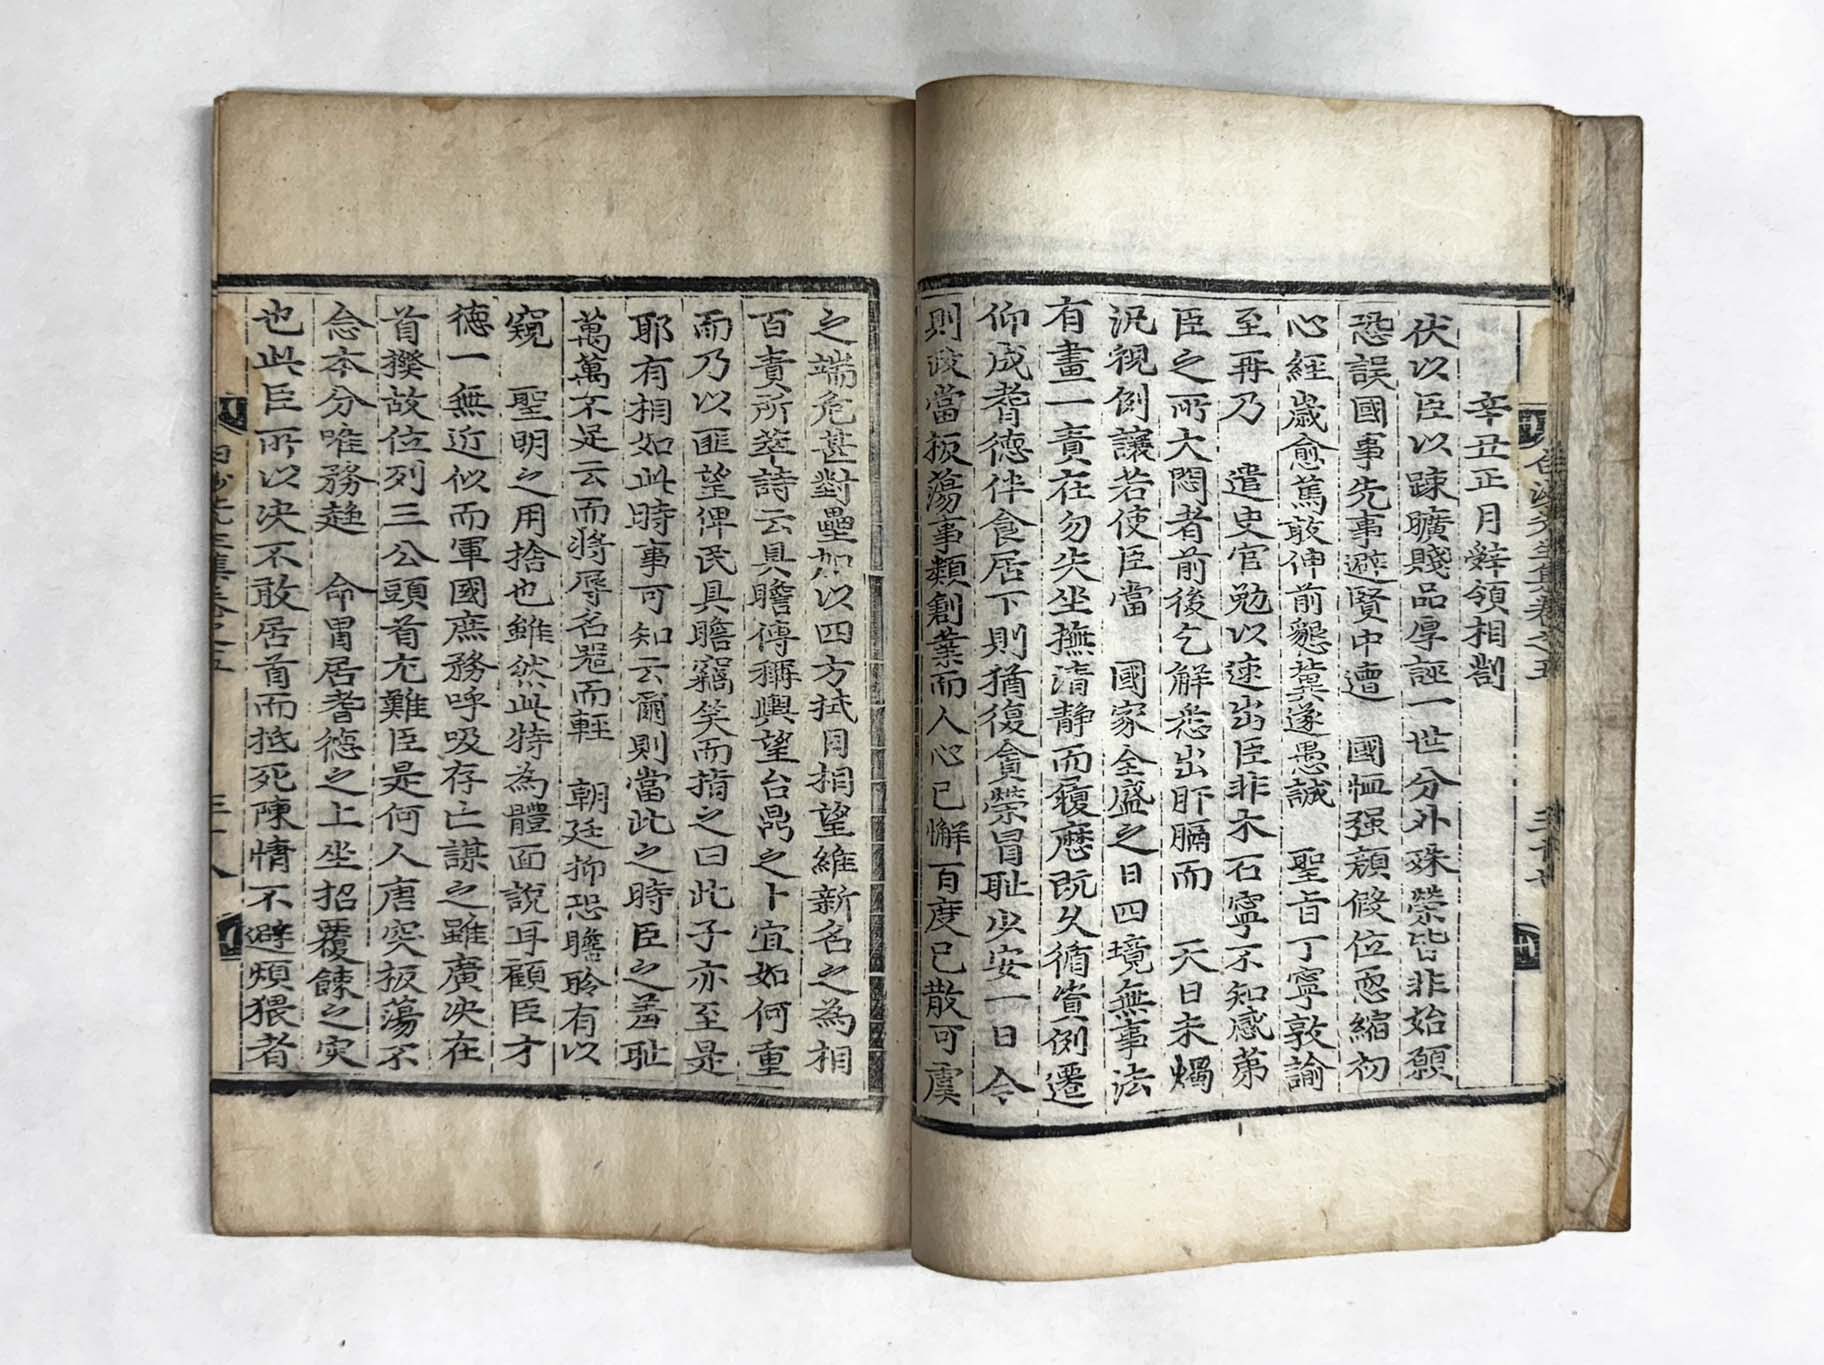 辛丑正月辭領相劄
伏以臣以踈曠賤品厚誣一世分外殊榮皆非始願
恐誤國事先事避賢中遭 國恤强顔假位恧縮初
心經歲愈篤敢伸前懇冀遂愚誠 聖旨丁寧敦諭
至再乃 遣史官勉以速出臣非木石寧不知感第
臣之所大悶者前後乞解悉出肝膈而 天日未燭
況視例讓若使臣當 國家全盛之日四境無事法
有畫一責在勿失坐撫淸静而履歷旣久循資例遷
仰成耆德伴食居下則猶復貪榮冒耻少安一日今
則政當板蕩事類創業而人心已懈百度已散可虞
之端危甚對壘加以四方拭目相望維新名之為相
百責所萃詩云具瞻傳稱輿望台鼎之卜宜如何重
而乃以匪望俾民具瞻竊笑而指之曰此子亦至是
耶有相如此時事可知云爾則當此之時臣之羞耻
萬萬不足云而將辱名器而輕 朝廷抑恐瞻聆有以
窺 聖明之用捨也雖然此特為體面說耳顧臣才
德一無近似而軍國庶務呼吸存亡謀之雖廣决在
首揆故位列三公頭首尤難臣是何人唐突板蕩不
念本分唯務趍 命冒居耆德之上坐招覆餗之灾
也此臣所以决不敢居首而抵死陳情不避煩猥者
先生集卷之五 三十八